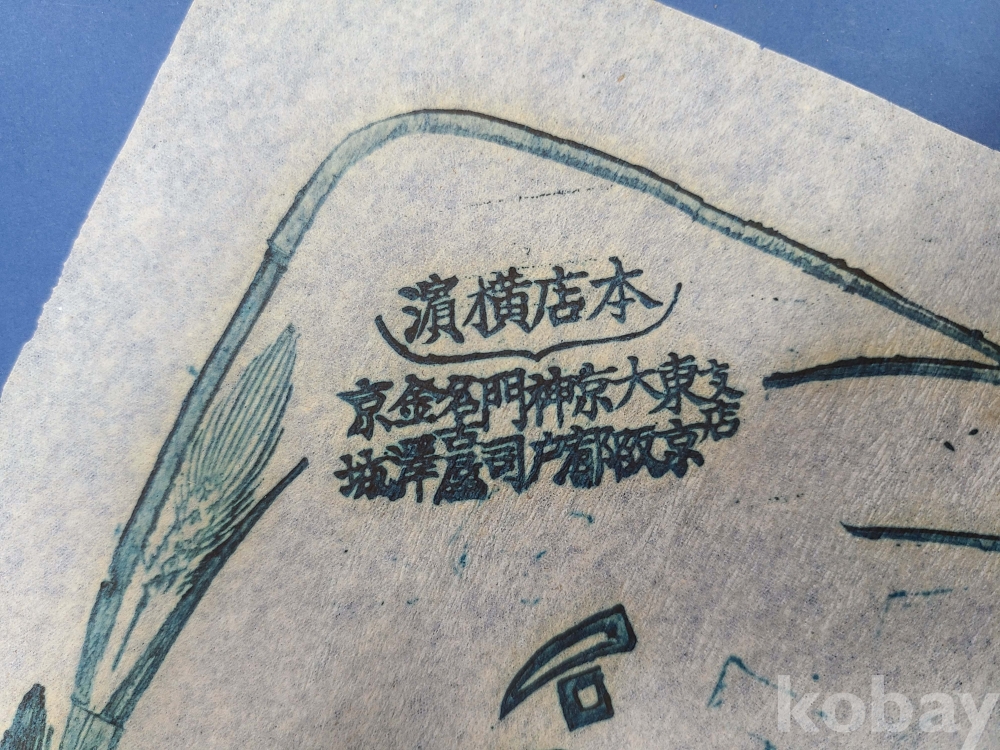 本店橫濱
支店 東京 大阪 京都 神戶 門司 名古屋 金澤 京城
kobay